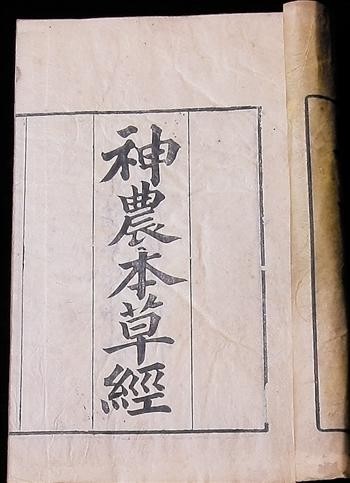 神農本草經